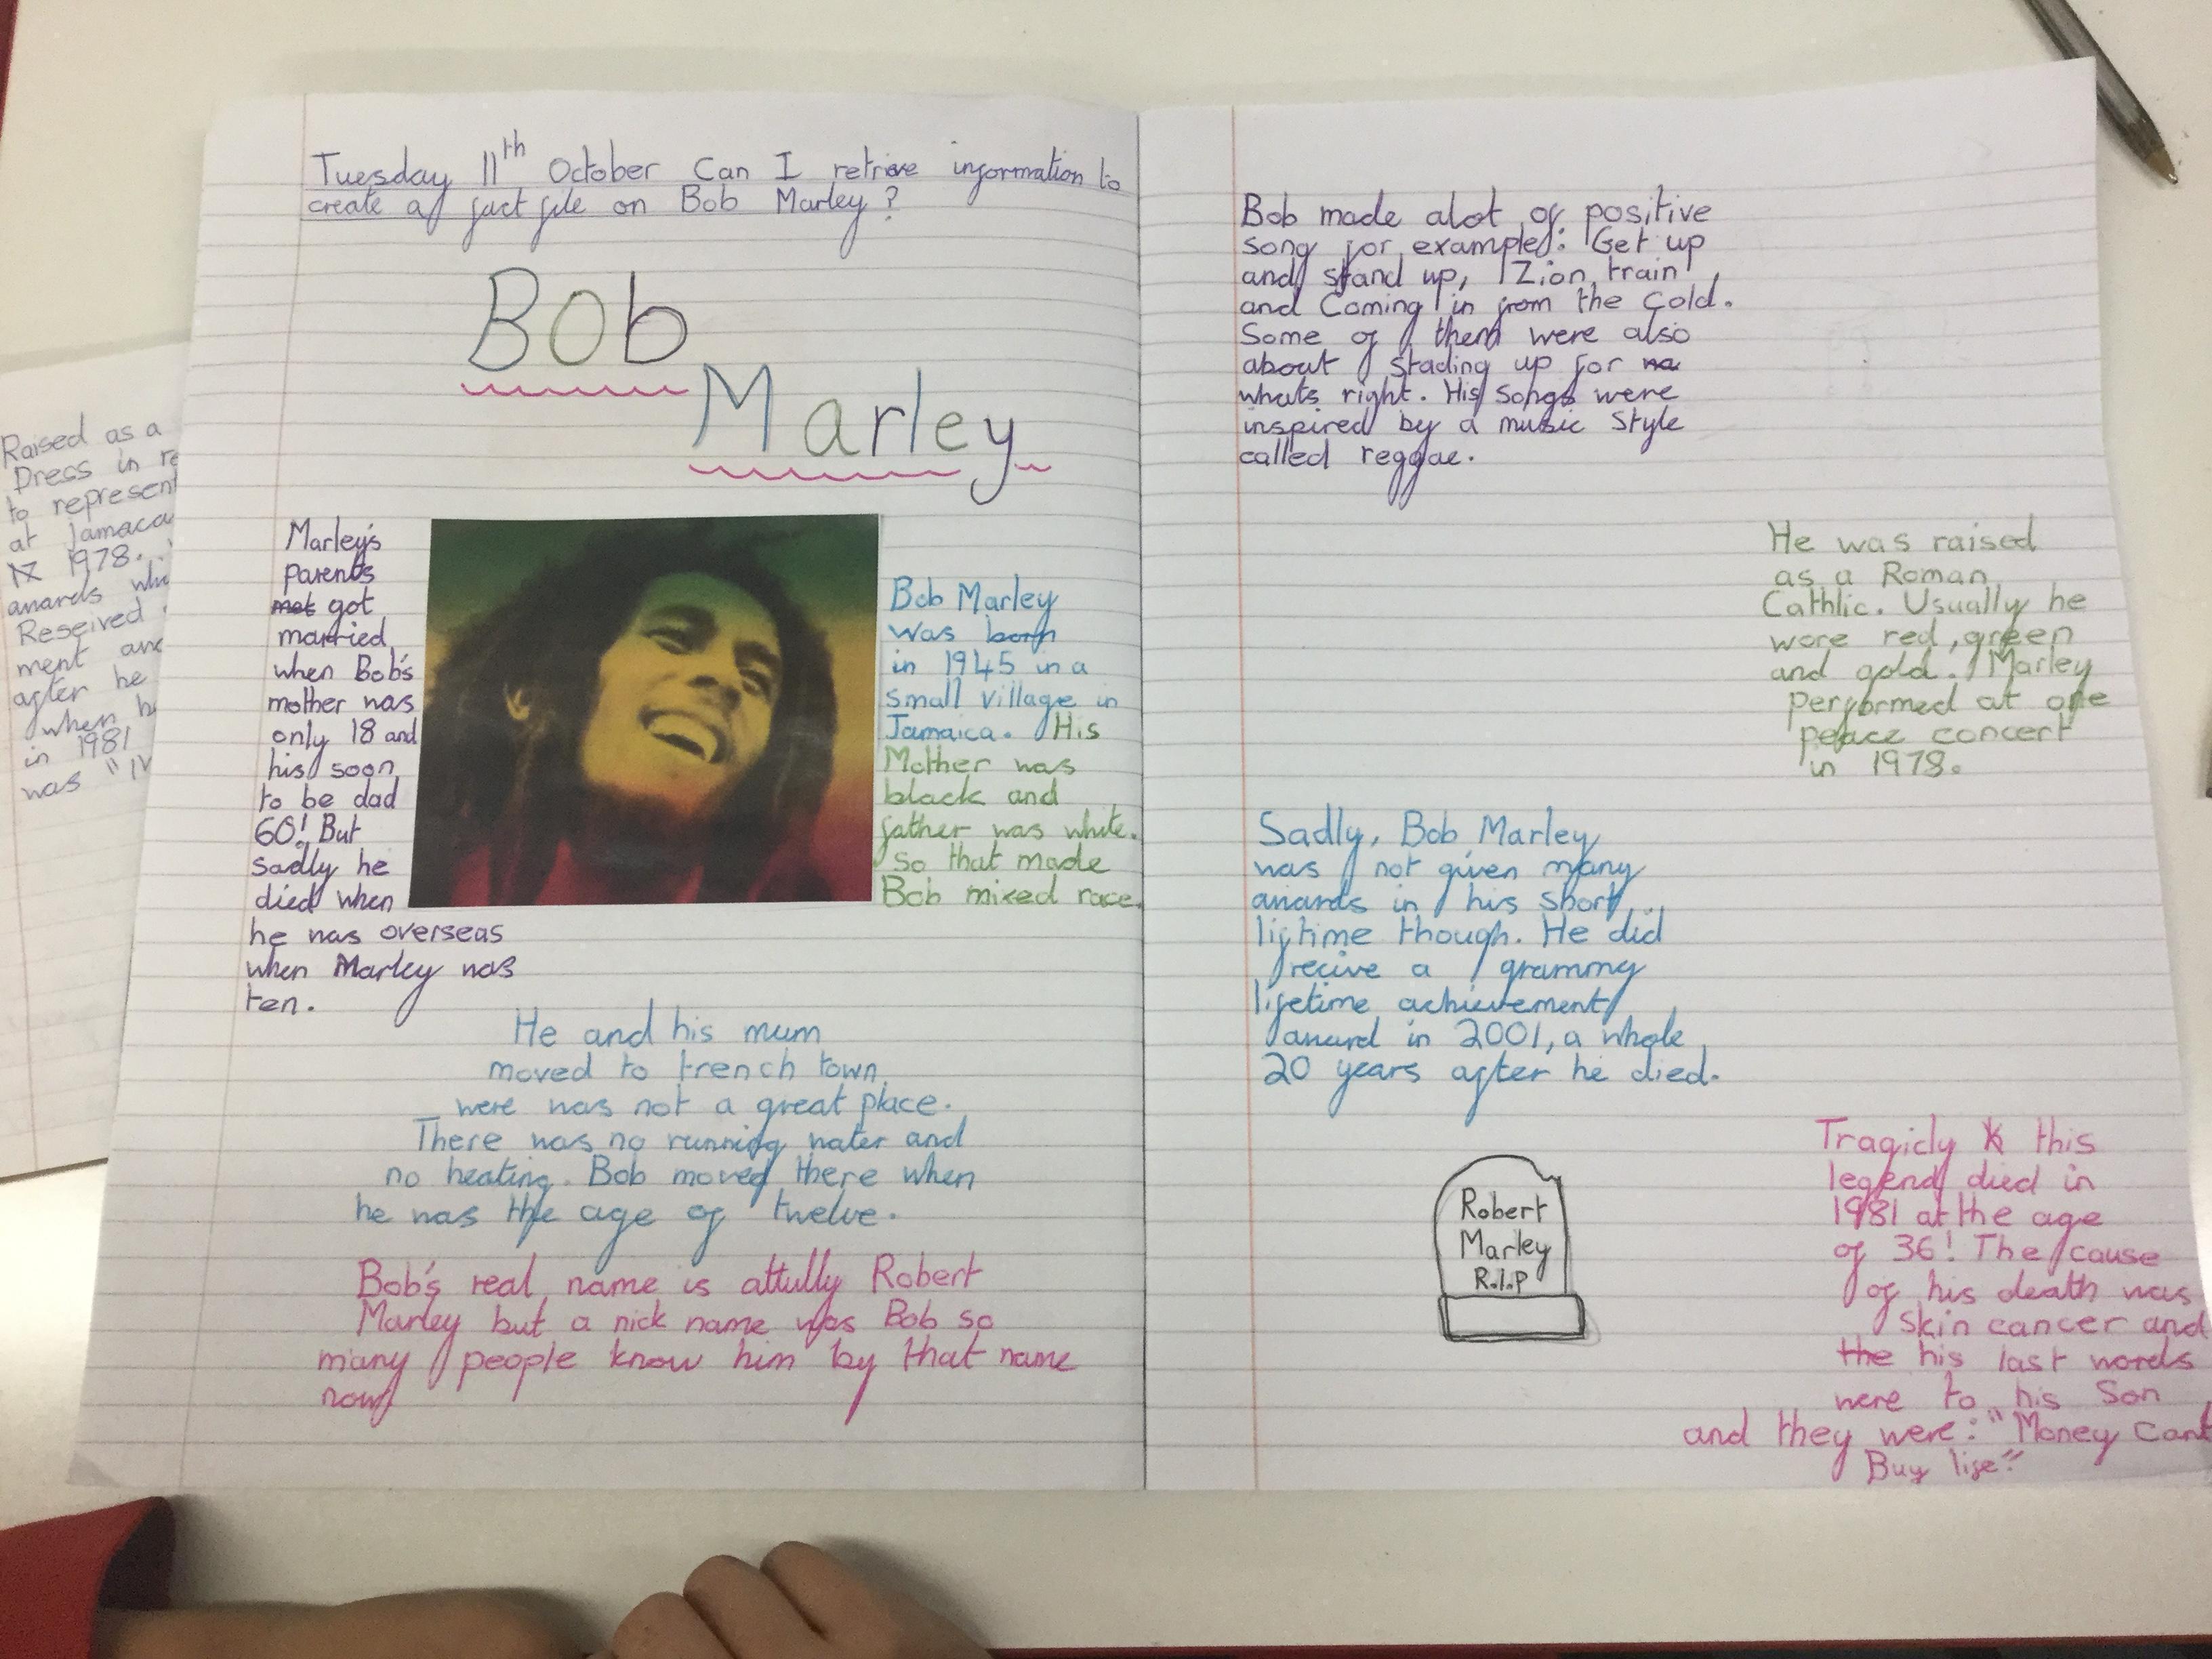 Tuesday 11th October Can I retrieve information to
create a fact file on Bob Marley?
Bob
Marley
Marley's
parents
met got
married
when Bob's
mother was
only 18 and
his soon
to be dad
60! But
sadly he
died when
he was overseas
when Marley was
ten.
Bob Marley
was born
in 1945 in a
small village in
Jamaica. His
Mother was
black and
father was white.
So that made
Bob mixed race.
He and his mum
moved to trench town,
were was not a great place.
There was no running water and
no heating. Bob moved there when
he was the age of twelve.
Bob's real name is attully Robert
Marley but a nick name was Bob so
many people know him by that name
now
Bob made alot of positive
song for example: Get up
and stand up, Zion train
and Coming in from the cold.
Some of them were also
about stading up for na
whats right. His songs were
inspired by a music style
called reggae.
He was raised
as a Roman
Cathlic. Usually he
wore red, green
and gold. Marley
performed at one
peace concert
in 1978.
Sadly, Bob Marley
was not given many
awards in his short
liftime though. He did
recive a grammy
lifetime achievement
award in 2001, a whole
20 years after he died.
Robert
Marley
R.I.P
Tragicly this
legend died in
1981 at the age
of 36! The cause
of his death was
skin cancer and
the his last words
were to his Son
and they were: "Money Cant
Buy life"
Raised as a
Dress in re
to represent
at Jamaca
1978.
awards whe
Reseived
ment and
after he
when h
in 1981
was "